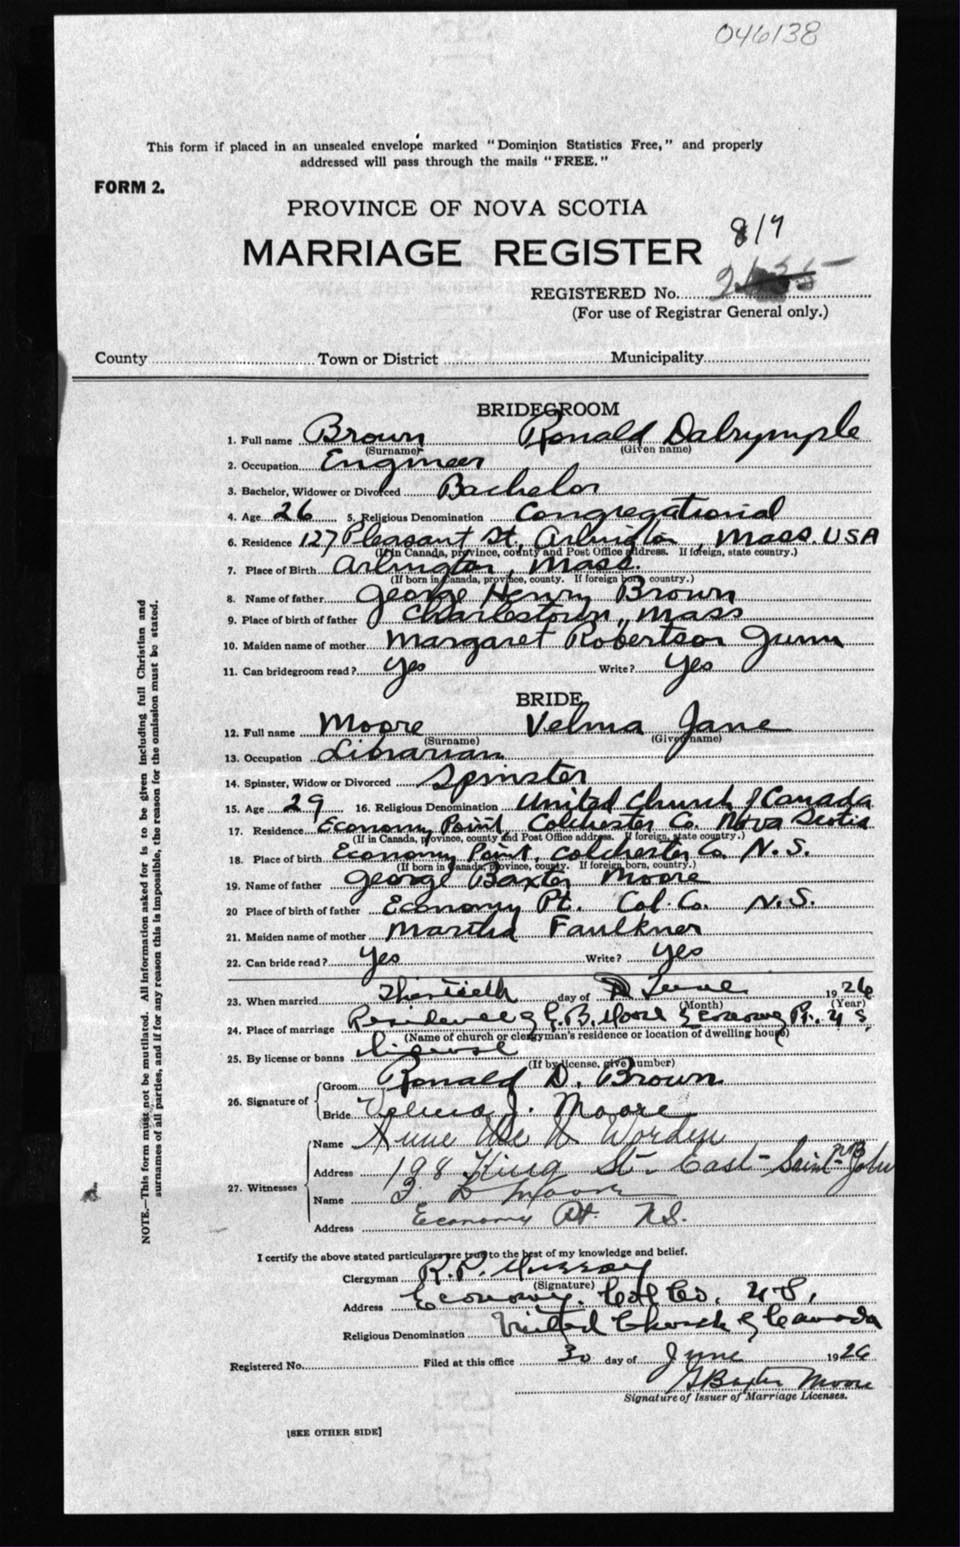 046138
This form if placed in an unsealed envelope marked "Dominion Statistics Free," and properly
addressed will pass through the mails "FREE."
FORM 2.
PROVINCE OF NOVA SCOTIA
MARRIAGE REGISTER
REGISTERED No.
(For use of Registrar General only.)
County Town or District Municipality
BRIDEGROOM
1. Full name Brown Ronald Dalrymple
(Surname) (Given name)
2. Occupation Engineer
3. Bachelor, Widower or Divorced Bachelor
4. Age 26 5. Religious Denomination Congregational
6. Residence 127 Pleasant St, Arlington, Mass. USA
(If in Canada, province, county and Post Office address. If foreign, state country.)
7. Place of Birth Arlington, Mass.
(If born in Canada, province, county. If foreign born, country.)
8. Name of father George Henry Brown
9. Place of birth of father Charlestown, Mass
10. Maiden name of mother Margaret Robertson Gunn
11. Can bridegroom read? Yes Write? Yes
BRIDE
12. Full name Moore Velma Jane
(Surname) (Given name)
13. Occupation Librarian
14. Spinster, Widow or Divorced Spinster
15. Age 29 16. Religious Denomination United Church of Canada
17. Residence Economy Point, Colchester Co. Nova Scotia
(If in Canada, province, county and Post Office address. If foreign, state country.)
18. Place of birth Economy Point, Colchester Co. N.S.
(If born in Canada, province, county. If foreign born, country.)
19. Name of father George Baxter Moore
20 Place of birth of father Economy Pt. Col. Co. N.S.
21. Maiden name of mother Martha Faulkner
22. Can bride read? Yes Write? Yes
23. When married Thirtieth day of June 1926
(Month) (Year)
24. Place of marriage Residence of G. B. Moore Economy Pt., N S,
(Name of church or clergyman's residence or location of dwelling house)
25. By license or banns license
(If by license, give number)
26. Signature of Groom Ronald D. Brown
Bride Velma J. Moore
27. Witnesses
Name Anne Worden
Address 198 King St. East - Saint John NB
Name Moore
Address Economy Pt. N.S.
I certify the above stated particulars are true to the best of my knowledge and belief.
Clergyman R. P. Murray
(Signature)
Address Economy, Col Co, N.S,
Religious Denomination United Church of Canada
Registered No. Filed at this office 30 day of June 1926
G Baxter Moore
Signature of Issuer of Marriage Licenses.
[SEE OTHER SIDE]
NOTE.—This form must not be mutilated. All information asked for is to be given including full Christian and
surnames of all parties, and if for any reason this is impossible, the reason for the omission must be stated.